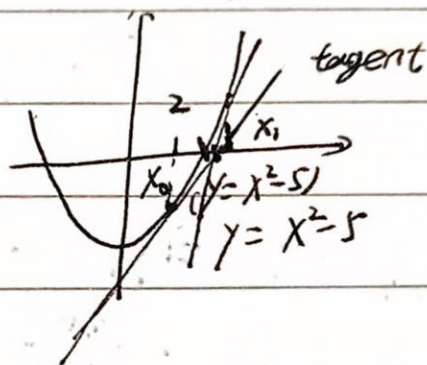 tagent
2
x₁
x₀
(y = x²-5)
y = x²-5